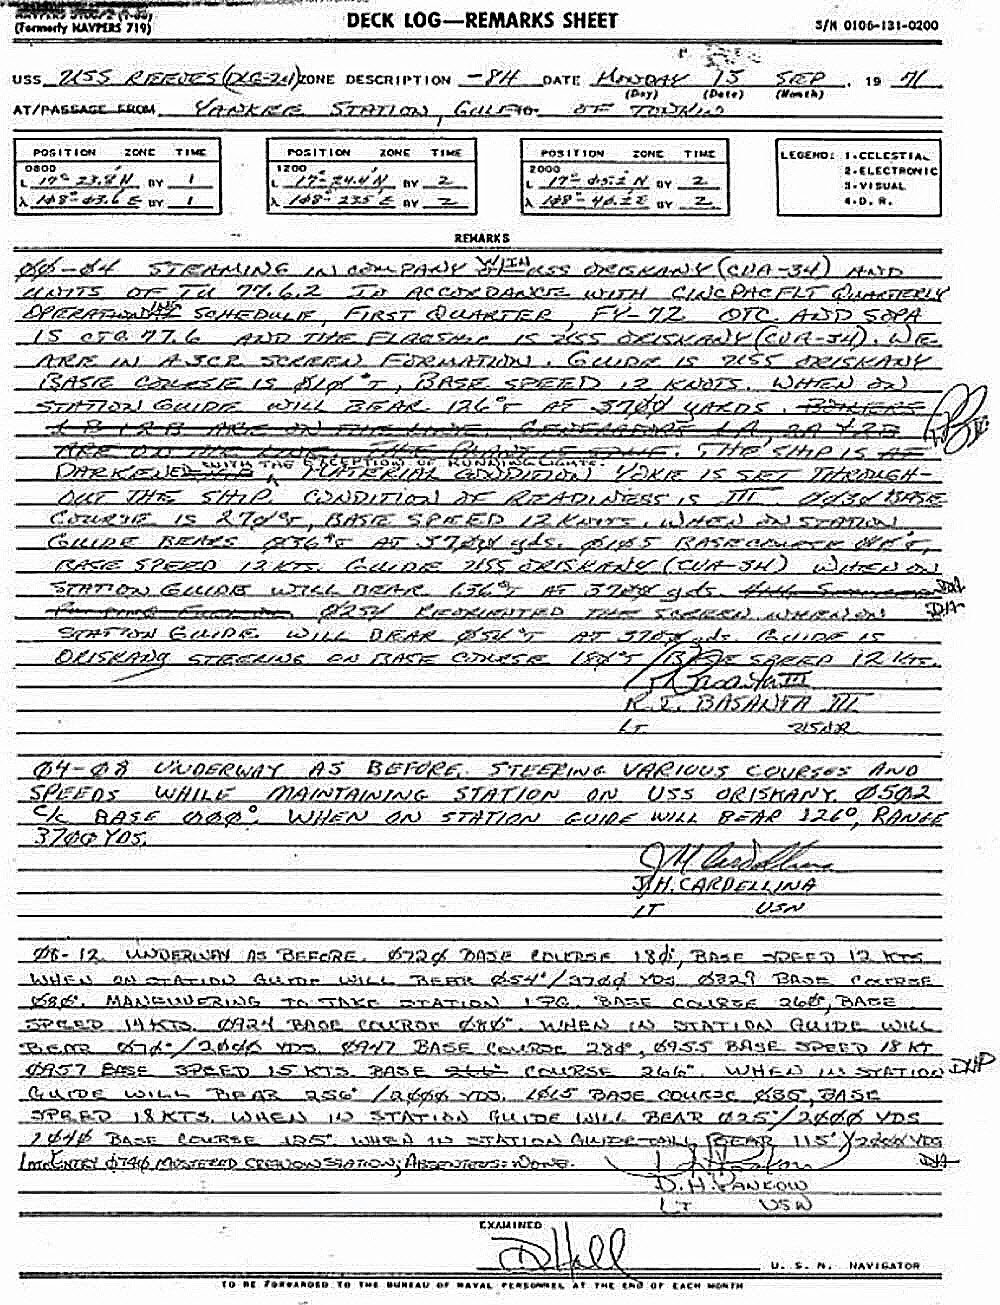 NAVPERS 3100/2 (7-68)
(Formerly NAVPERS 719)
DECK LOG—REMARKS SHEET
S/N 0106-131-0200
USS USS REEVES (DLG-24) ZONE DESCRIPTION -8H DATE MONDAY 13 SEP , 19 71
(Day) (Date) (Month)
AT/PASSAGE FROM YANKEE STATION, GULF TO OF TONKIN
POSITION ZONE TIME
0800
L 17° 23.8'N BY 1
λ 1Ø8° Ø3.6'E BY 1
POSITION ZONE TIME
1200
L 17° 24.4'N BY 2
λ 1Ø8° 23.5'E BY 2
POSITION ZONE TIME
2000
L 17° Ø5.2'N BY 2
λ 1Ø8° BY 2
LEGEND: 1-CELESTIAL
2-ELECTRONIC
3-VISUAL
4-D. R.
REMARKS
ØØ-Ø4 STEAMING IN COMPANY WITH USS ORISKANY (CVA-34) AND
UNITS OF TU 77.6.2 IN ACCORDANCE WITH CINCPACFLT QUARTERLY
OPERATING SCHEDULE, FIRST QUARTER, FY-72 OTC AND SOPA
IS CTG 77.6 AND THE FLAGSHIP IS USS ORISKANY (CVA-34). WE
ARE IN A 3CR SCREEN FORMATION. GUIDE IS USS ORISKANY
BASE COURSE IS Ø1Ø°T, BASE SPEED 12 KNOTS. WHEN ON
STATION GUIDE WILL BEAR 126°T AT 37ØØ YARDS. BOILERS
1B 2B ARE ON THE LINE. GENERATORS 1A 2A & 2B
ARE ON THE LINE. THE PLANT IS THE SHIP IS
DARKENED WITH THE EXCEPTION OF RUNNING LIGHTS. MATERIAL CONDITION YOKE IS SET THROUGH-
OUT THE SHIP. CONDITION OF READINESS IS III. ØØ3Ø BASE
COURSE IS 27Ø°T, BASE SPEED 12 KNOTS. WHEN ON STATION
GUIDE BEARS Ø36°T AT 37ØØ yds. Ø1Ø5 BASE COURSE
BASE SPEED 12 KTS. GUIDE USS ORISKANY (CVA-34) WHEN ON
STATION GUIDE WILL BEAR 136°T AT 37ØØ yds.
Ø254 REORIENTED THE SCREEN WHEN ON
STATION GUIDE WILL BEAR Ø54°T AT 37ØØ yds. GUIDE IS
ORISKANY STEERING ON BASE COURSE 18Ø°T BASE SPEED 12 KTS.
R. E. BASANTA III
LT USNR
Ø4-Ø8 UNDERWAY AS BEFORE. STEERING VARIOUS COURSES AND
SPEEDS WHILE MAINTAINING STATION ON USS ORISKANY. Ø5Ø2
C/C BASE ØØØ°. WHEN ON STATION GUIDE WILL BEAR 126°, RANGE
37ØØ YDS.
J.H. CARDELLINA
LT USN
Ø8-12. UNDERWAY AS BEFORE. Ø72Ø BASE COURSE 18Ø°, BASE SPEED 12 KTS
WHEN ON STATION GUIDE WILL BEAR Ø54°/37ØØ YDS. Ø829 BASE COURSE
Ø8Ø°. MANEUVERING TO TAKE STATION BASE COURSE 26Ø°, BASE
SPEED 14 KTS. Ø924 BASE COURSE Ø8Ø°. WHEN IN STATION GUIDE WILL
BEAR Ø7Ø°/2ØØØ YDS. Ø947 BASE COURSE 28Ø°, Ø955 BASE SPEED 18 KT
Ø957 BASE SPEED 15 KTS BASE COURSE 266°. WHEN IN STATION DHP
GUIDE WILL BEAR 256°/2ØØØ YDS. 1Ø15 BASE COURSE Ø35, BASE
SPEED 18 KTS. WHEN IN STATION GUIDE WILL BEAR Ø25°/2ØØØ YDS
1Ø4Ø BASE COURSE 125°. WHEN IN STATION GUIDE WILL BEAR 115°/2ØØØ YDS
LATE ENTRY Ø74Ø MUSTERED CREW ON STATION; ABSENTEES: NONE.
D. H. PANKOW
LT USN
EXAMINED
D Hall
U. S. N. NAVIGATOR
TO BE FORWARDED TO THE BUREAU OF NAVAL PERSONNEL AT THE END OF EACH MONTH